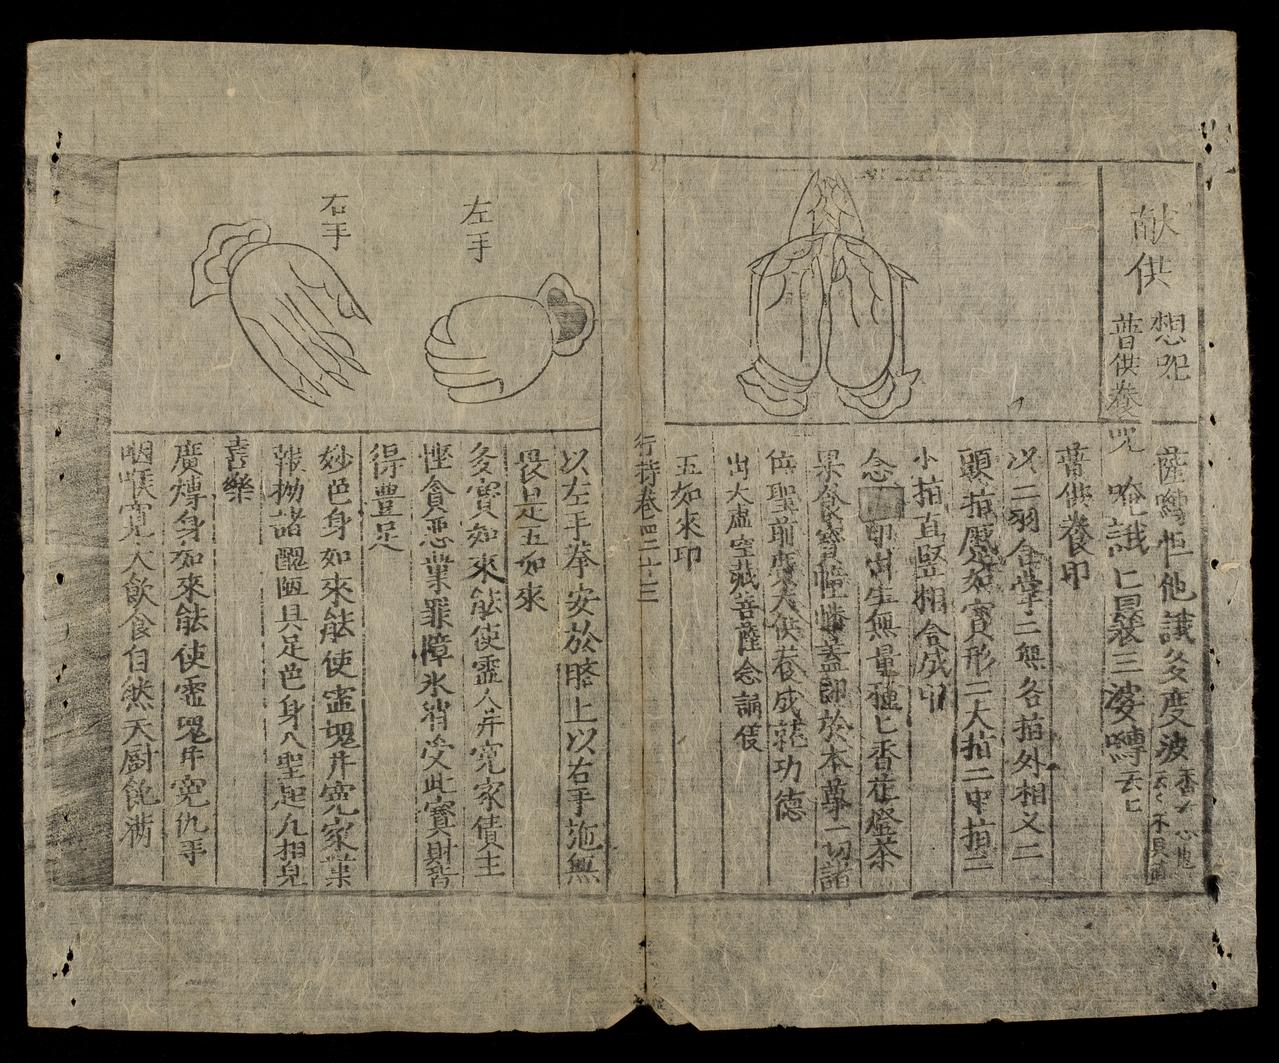 献供
想呪
普供養呪
薩嚩怛他誐多度波
唵誐仁曩裟三婆嚩云七
普供養印
以二羽合掌二無名指外相叉二
頭指蹙如寶形二大指二中指二
小指直竪相合成印
念 印出生無量種匕香花燈茶
果食寶幢幡盖即於本尊一切諸
佛聖前廣大供養成就功德
出大虛空藏菩薩念誦儀
五如來印
行持卷四二十三
左手
右手
以左手拳安於臍上以右手施無
畏是五如來
多寶如來能使靈人并寃家債主
慳貪惡業罪障氷消受此寶財皆
得豊足
妙色身如來能使靈魂并寃家業
報拗諸醜陋具足色身八聖起凡相皃
喜樂
廣博身如來能使靈魂并寃仇乎
咽喉寬大飮食自然天厨飽滿